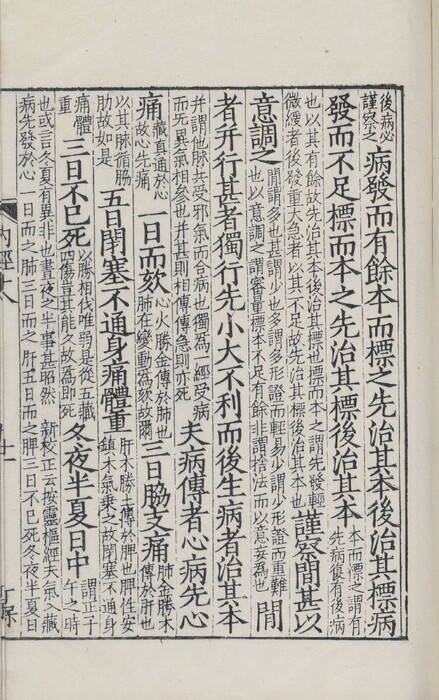 後病必
謹察之
病發而有餘本而標之先治其本後治其標病
發而不足標而本之先治其標後治其本
本而標之謂有
先病復有後病
也以其有餘故先治其本後治其標也標而本之謂先發輕
微緩者後發重大急者以其不足故先治其標後治其本也
謹察間甚以
意調之
間謂多也甚謂少也多謂多形證而輕易少謂少形證而重難
也以意調之謂審量標本不足有餘非謂捨法而以意妄為也
間
者并行甚者獨行先小大不利而後生病者治其本
并謂他脉共受邪氣而合病也獨為一經受病
而无異氣相參也并甚則相傳傳急則亦死
夫病傳者心病先心
痛
藏真通於心
故心先痛
一日而欬
心火勝金傳於肺也
肺在變動為欬故爾
三日脇支痛
肺金勝木
傳於肝也
以其脉循脇
肋故如是
五日閉塞不通身痛體重
肝木勝土傳於脾也脾性安
鎮木氣乘之故閉塞不通身
痛體
重
三日不已死
以勝相伐唯弱是從五藏
四傷豈其能久故為即死
冬夜半夏日中
謂正子
午之時
也或言冬夏有異非也晝夜之半事甚昭然 新校正云按靈樞經大氣入藏
病先發於心一日而之肺三日而之肝五日而之脾三日不已死冬夜半夏日
內經
十一